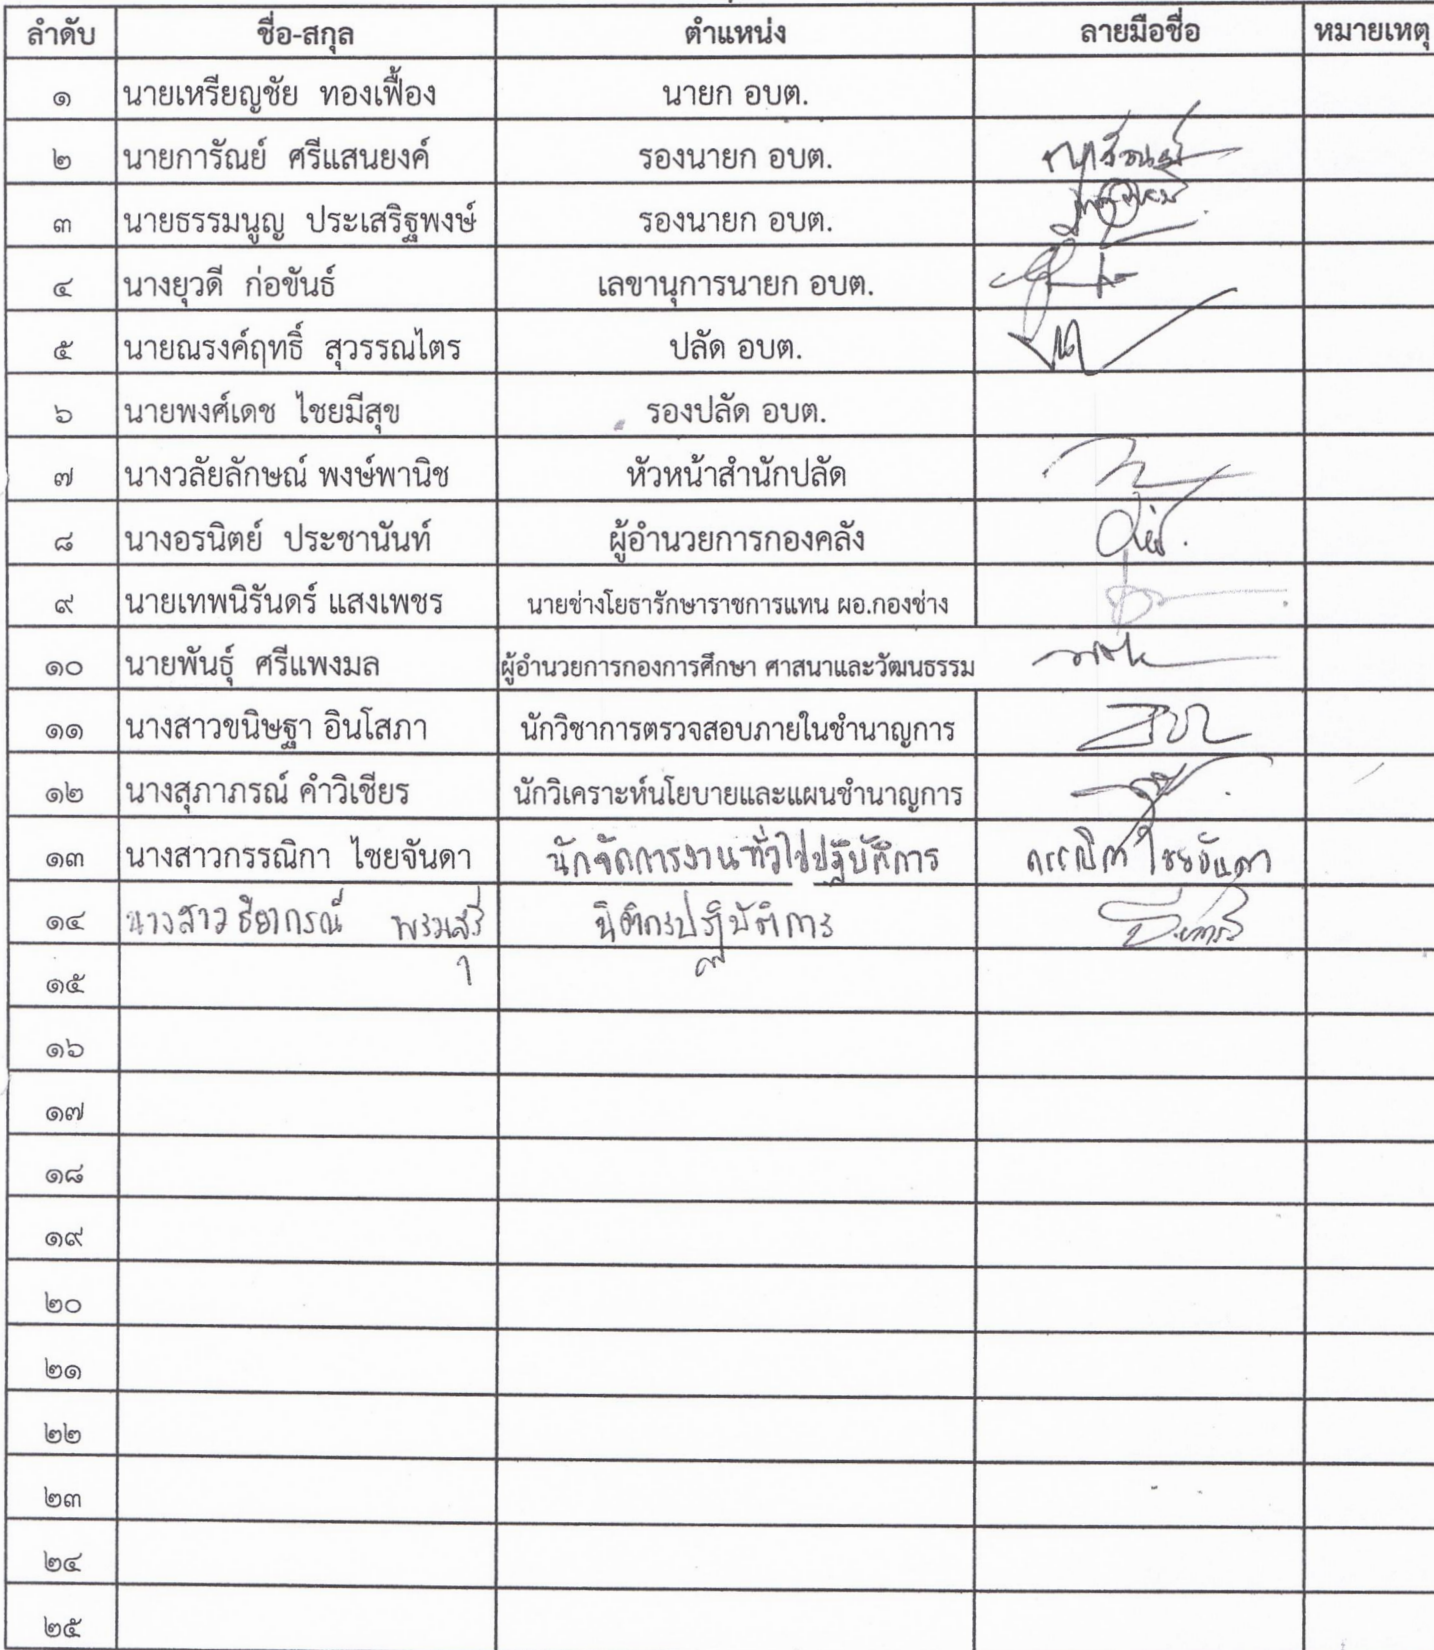 ลำดับ ชื่อ-สกุล ตำแหน่ง ลายมือชื่อ หมายเหตุ
๑ นายเหรียญชัย ทองเฟื้อง นายก อบต.
๒ นายการัณย์ ศรีแสนยงค์ รองนายก อบต.
๓ นายธรรมนูญ ประเสริฐพงษ์ รองนายก อบต.
๔ นางยุวดี ก่อขันธ์ เลขานุการนายก อบต.
๕ นายณรงค์ฤทธิ์ สุวรรณไตร ปลัด อบต.
๖ นายพงศ์เดช ไชยมีสุข รองปลัด อบต.
๗ นางวลัยลักษณ์ พงษ์พานิช หัวหน้าสำนักปลัด
๘ นางอรนิตย์ ประชานันท์ ผู้อำนวยการกองคลัง
๙ นายเทพนิรันดร์ แสงเพชร นายช่างโยธารักษาราชการแทน ผอ.กองช่าง
๑๐ นายพันธุ์ ศรีแพงมล ผู้อำนวยการกองการศึกษา ศาสนาและวัฒนธรรม
๑๑ นางสาวขนิษฐา อินโสภา นักวิชาการตรวจสอบภายในชำนาญการ
๑๒ นางสุภาภรณ์ คำวิเชียร นักวิเคราะห์นโยบายและแผนชำนาญการ
๑๓ นางสาวกรรณิกา ไชยจันดา นักจัดการงานทั่วไปปฏิบัติการ กรรณิกา ไชยจันดา
๑๔ นางสาว นิติกรปฏิบัติการ
๑๕
๑๖
๑๗
๑๘
๑๙
๒๐
๒๑
๒๒
๒๓
๒๔
๒๕